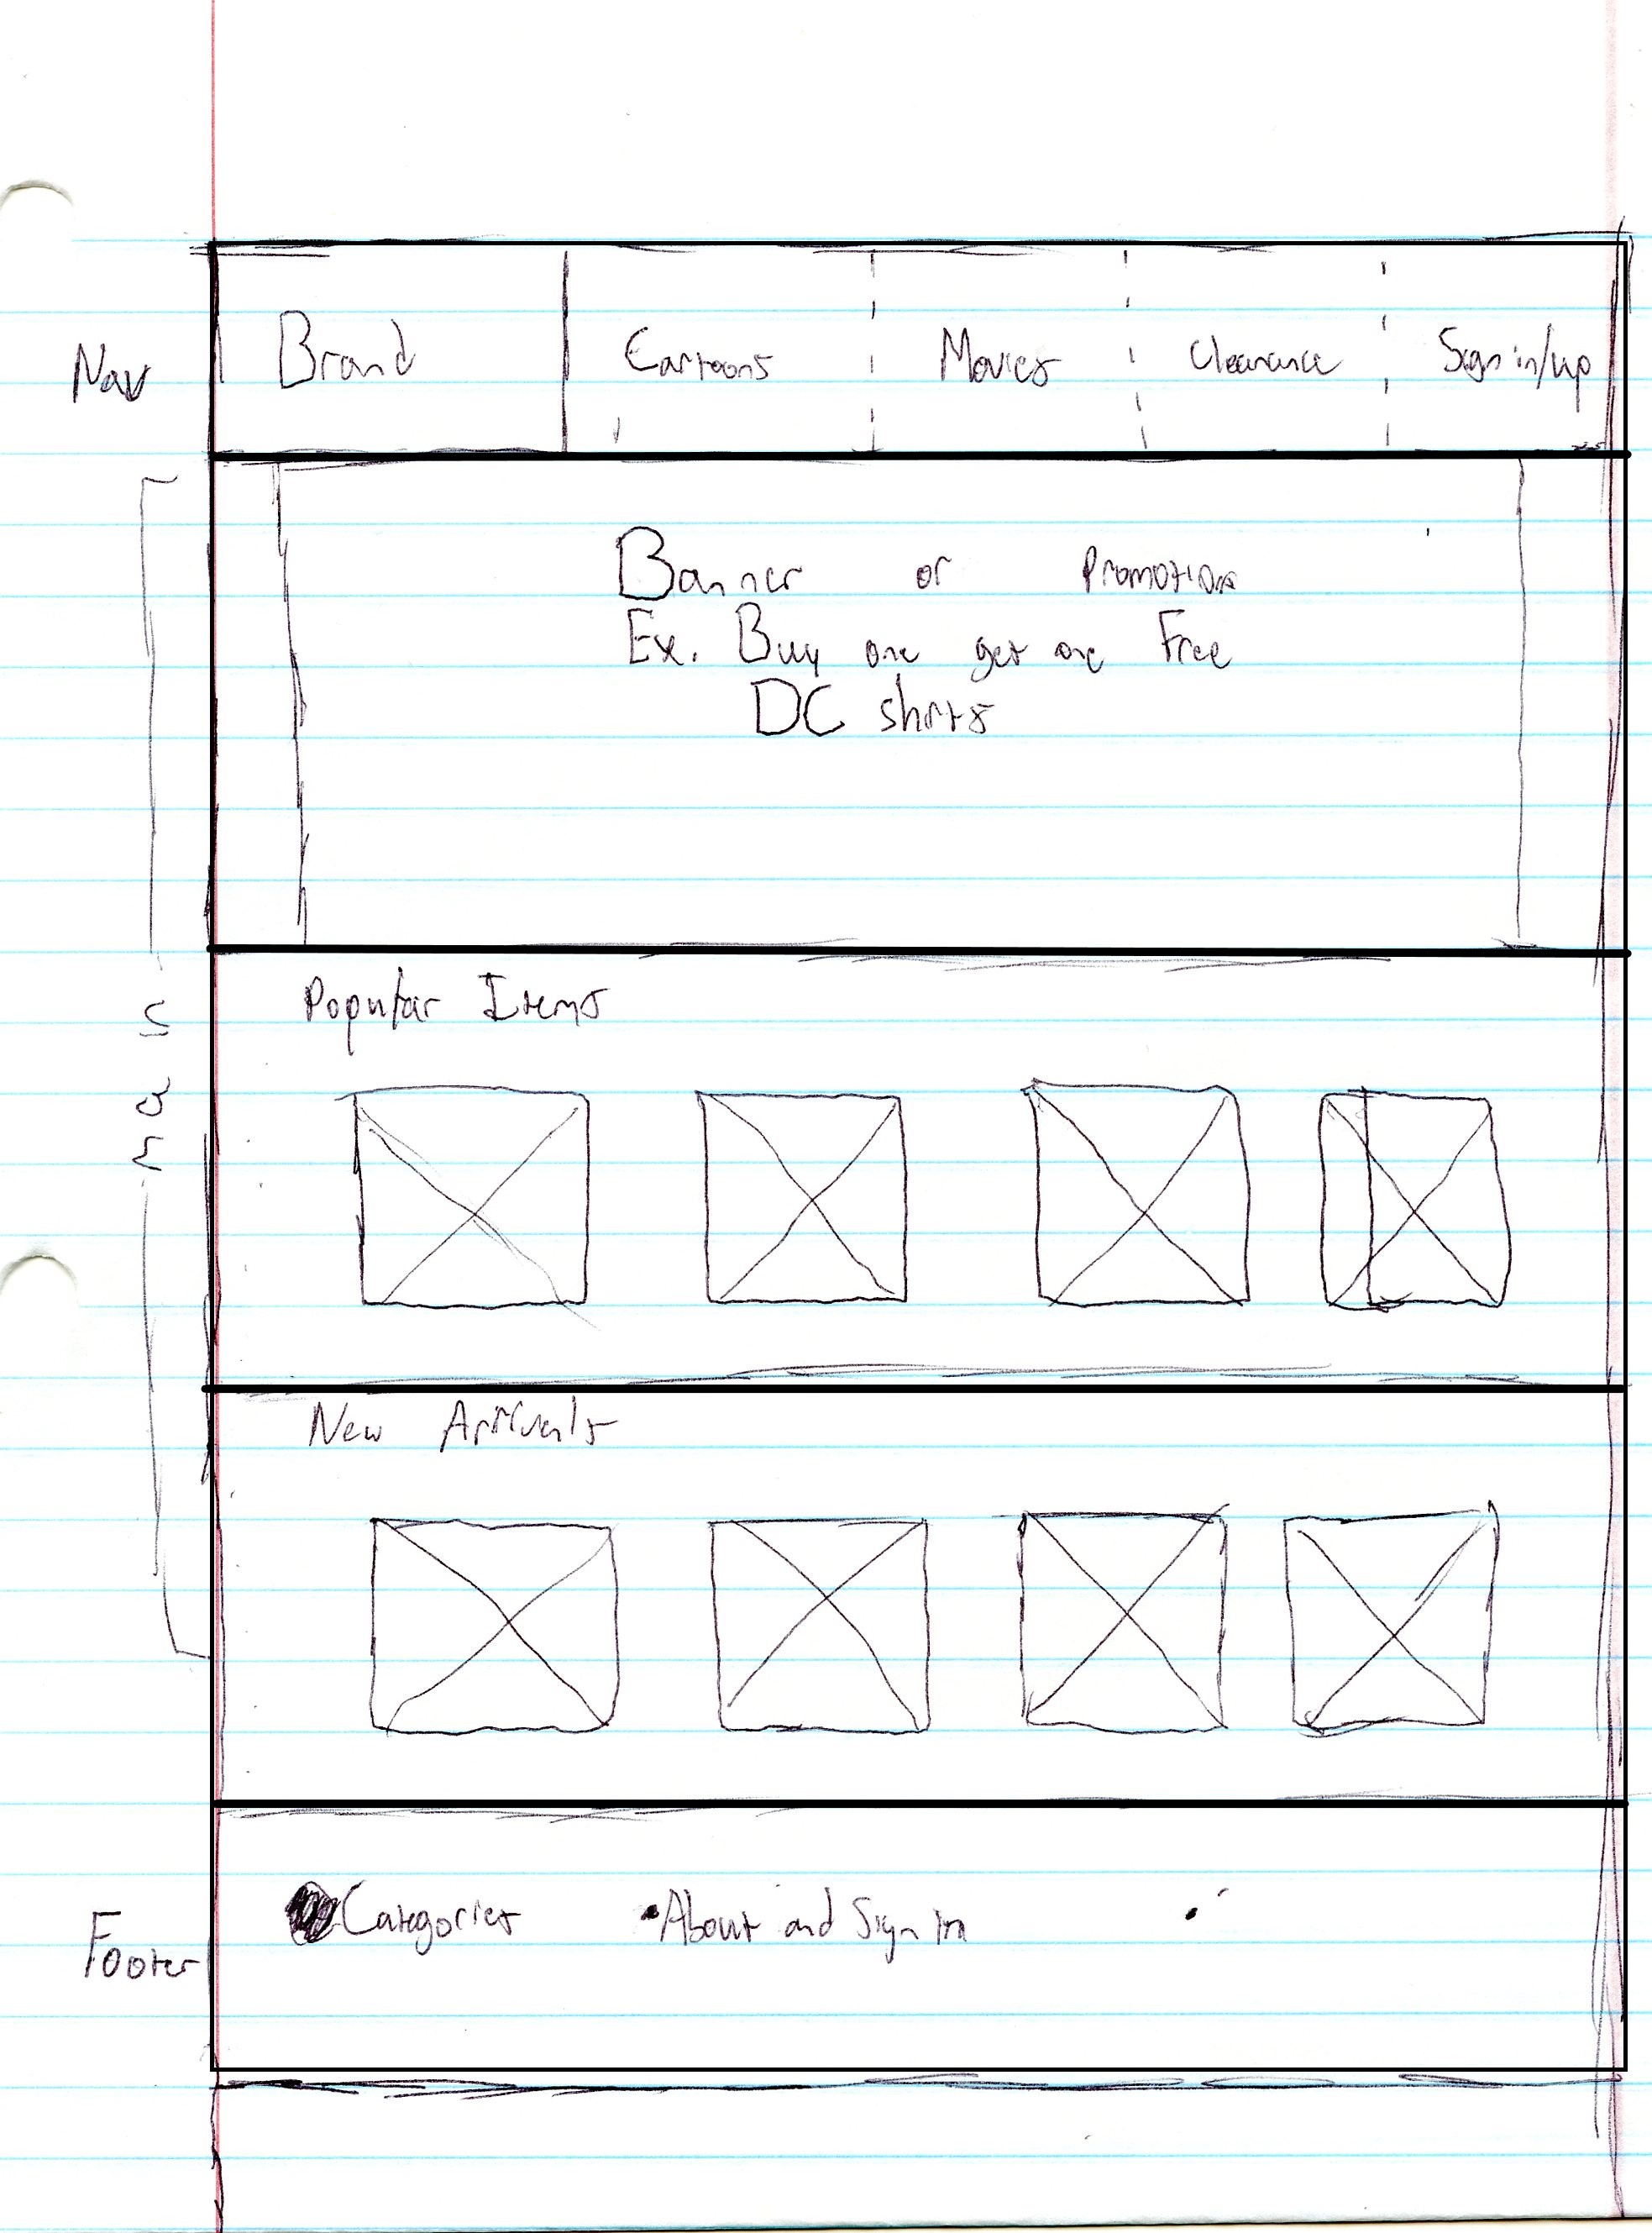 Nav
Brand
Cartoons
Movies
Clearance
Sign in/up
Banner or Promotion
Ex. Buy one get one Free
DC shirts
Main
Popular Items
New Arrivals
Footer
Categories
•About and Sign In
•